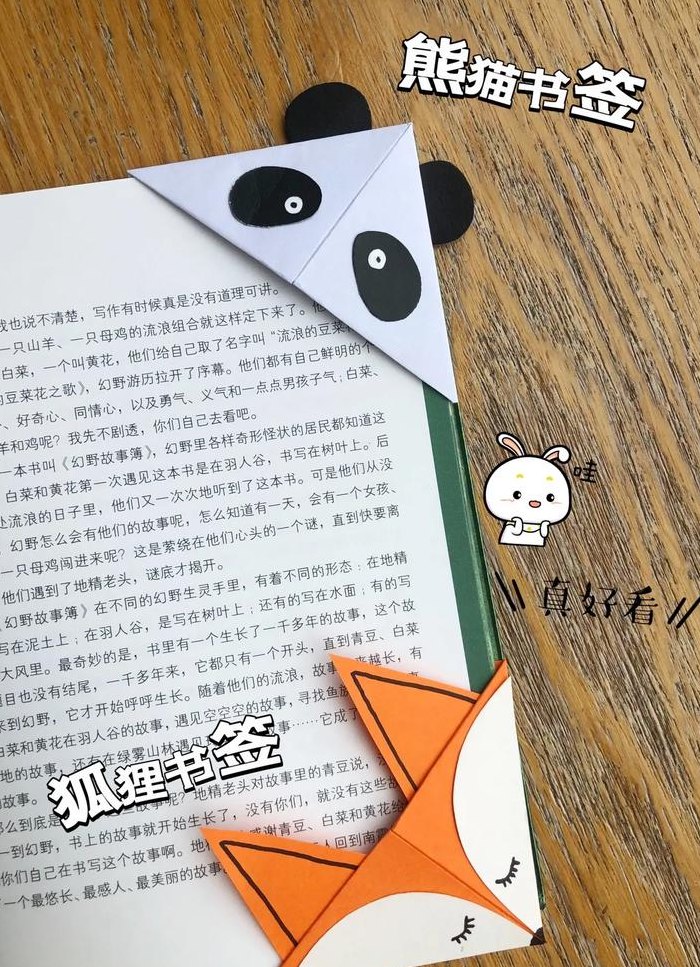 熊猫书签
我也说不清楚，写作有时候真是没有道理可讲。
一只山羊、一只母鸡的流浪组合就这样定下来了。他
白菜，一个叫黄花，他们给自己取了名字叫“流浪的豆菜
的豆菜花之歌》，幻野游历拉开了序幕。他们都有自己鲜明的个
、好奇心、同情心，以及勇气、义气和一点点男孩子气；白菜、
羊和鸡呢？我先不剧透，你们自己去看吧。
一本书叫《幻野故事簿》，幻野里各样奇形怪状的居民都知道这
白菜和黄花第一次遇见这本书是在羽人谷，书写在树叶上。后
处流浪的日子里，他们又一次次地听到了这本书。可是他们从没
，幻野怎么会有他们的故事呢，怎么知道有一天，会有一个女孩、
一只母鸡闯进来呢？这是萦绕在他们心头的一个谜，直到快要离
他们遇到了地精老头，谜底才揭开。
《幻野故事簿》在不同的幻野生灵手里，有着不同的形态：在地精
写在泥土上；在羽人谷，是写在树叶上；还有的写在水面；有的写
大风里。最奇妙的是，书里有一个生长了一千多年的故事，这个故
题目也没有结尾，一千多年来，它都只有一个开头，直到青豆、白菜
来到幻野，它才开始呼呼生长。随着他们的流浪，故事 来越长，有
白菜和黄花在羽人谷的故事，遇见空空空的故事，寻找鱼族
地的故事，还有在绿雾山林遇见 事……它成了
的故事。 故事呢？地精老头对故事里的青豆说，
那么到底是
一到幻野，书上的故事就开始生长了，没有你们，就没有这些故
你们自己在书写这个故事啊。地 感谢青豆、白菜和黄花给
了一个最悠长、最感人、最美丽的故事 人回到南
哇
真好看
狐狸书签